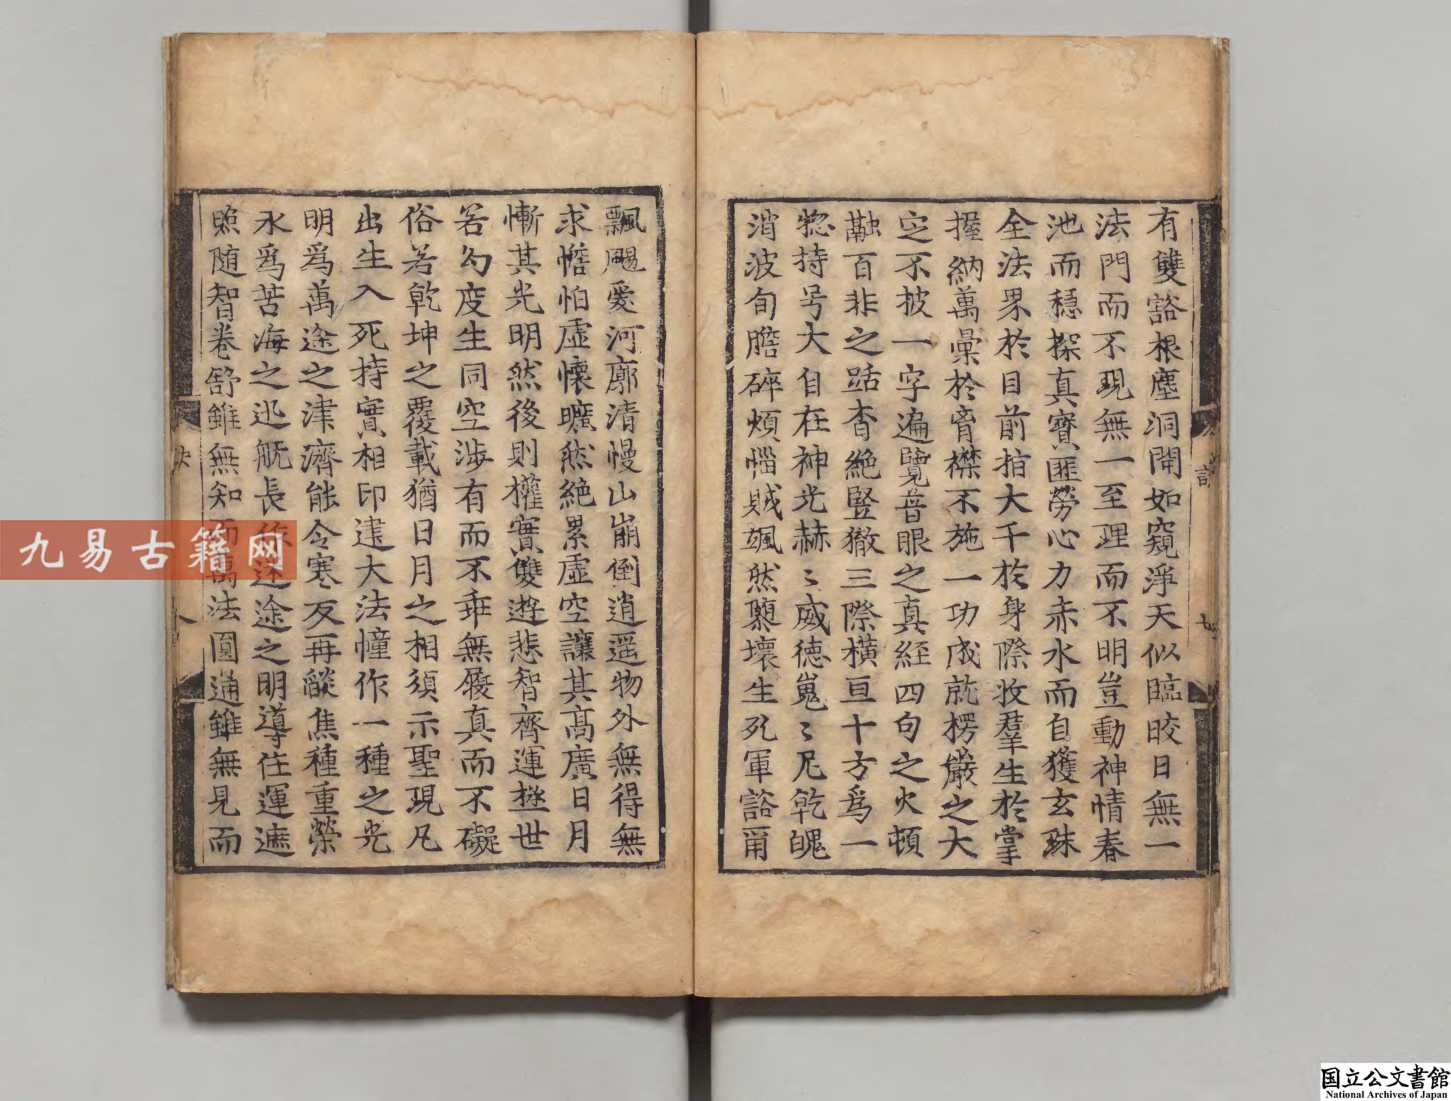 有雙谽根塵洞開如窺淨天似臨晈日無一
法門而不現無一至理而不明豈動神情春
池而穩探真寶匪勞心力赤水而自獲玄珠
全法界於目前指大千於身際收羣生於掌
握納萬彙於胷襟不施一功成就楞嚴之大
定不披一字遍覽普眼之真経四句之火頓
融百非之路杳絶竪徹三際横亘十方爲一
惣持号大自在神光赫〻威德嵬〻尼乹魄
消波旬膽碎煩惱賊颯然隳壞生死軍谽爾
飄颺愛河廓清慢山崩倒逍遥物外無得無
求憺怕虚懷曠然絶累虚空讓其髙廣日月
慚其光明然後則權實雙遊悲智齊運拯世
若幻度生同空渉有而不乖無履真而不礙
俗若乹坤之覆載猶日月之相須示聖現凡
出生入死持實相印建大法幢作一種之光
明爲萬途之津濟能令寒灰再燄焦種重榮
永爲苦海之迅航長作迷途之明導任運遮
照随智卷舒雖無知而萬法圓通雖無見而
訣
七
九易古籍网
国立公文書館
National Archives of Japan